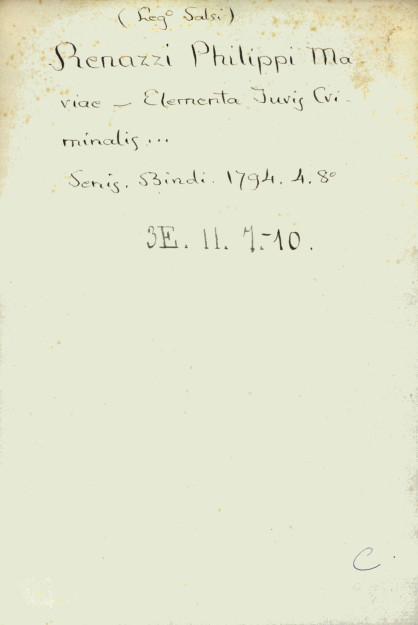 (Leg.º Salsi)
Renazzi Philippi Ma
riae - Elementa Juris Cri-
minalis...
Senis. Bindi. 1794. 4. 8º
3E. II. 7.-10.
C